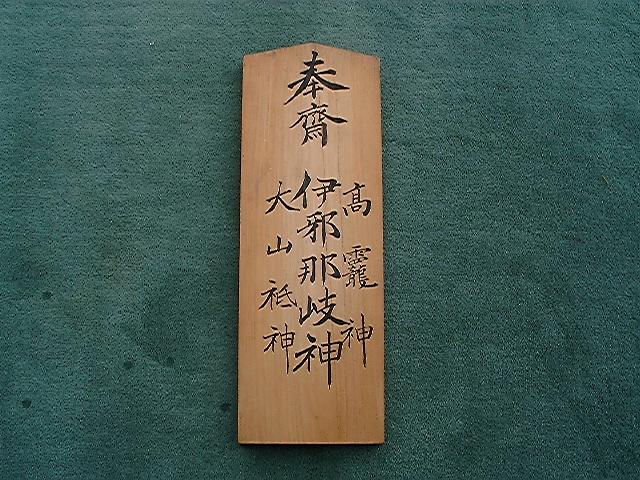 奉齋
高龗神
伊邪那岐神
大山祗神